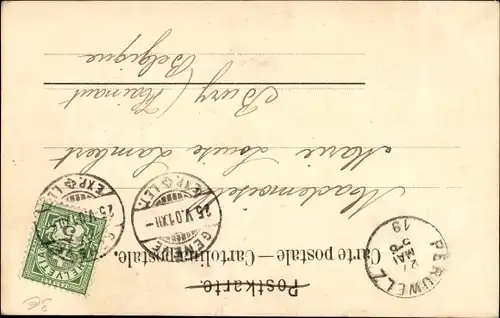 Postkarte.
Carte postale. — Cartolina postale.
Mademoiselle
Marie Louise Lambert
Bury (Hainaut
Belgique
HELVETIA
GENÈVE
25.V.01.XII–
EXP. LET.
EXP. LET.
25.V.01
PERUWELZ
27
MAI
5-6
19
3€